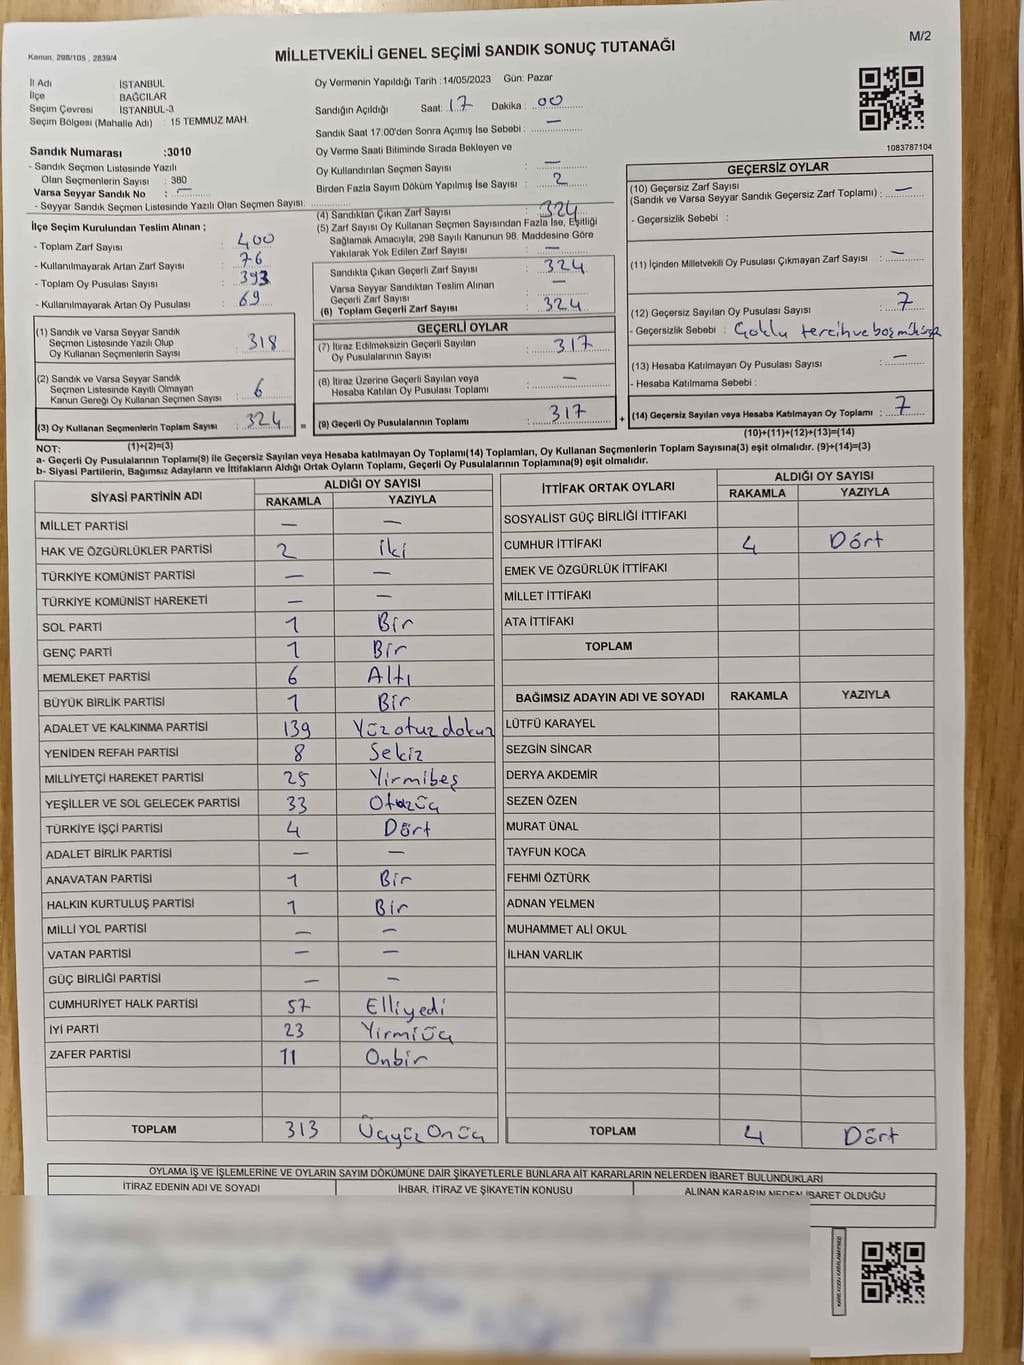 M/2
Kanun, 298/105 , 2839/4
MİLLETVEKİLİ GENEL SEÇİMİ SANDIK SONUÇ TUTANAĞI
İl Adı İSTANBUL
İlçe BAĞCILAR
Seçim Çevresi İSTANBUL-3
Seçim Bölgesi (Mahalle Adı) : 15 TEMMUZ MAH.
Sandık Numarası :3010
- Sandık Seçmen Listesinde Yazılı
Olan Seçmenlerin Sayısı : 380
Varsa Seyyar Sandık No : —
- Seyyar Sandık Seçmen Listesinde Yazılı Olan Seçmen Sayısı:
Oy Vermenin Yapıldığı Tarih :14/05/2023 Gün: Pazar
Sandığın Açıldığı Saat: 17 Dakika : 00
Sandık Saat 17.00'den Sonra Açımış İse Sebebi : —
Oy Verme Saati Bitiminde Sırada Bekleyen ve
Oy Kullandırılan Seçmen Sayısı : —
Birden Fazla Sayım Döküm Yapılmış İse Sayısı : 2
1083787104
İlçe Seçim Kurulundan Teslim Alınan ;
- Toplam Zarf Sayısı : 400
- Kullanılmayarak Artan Zarf Sayısı : 76
- Toplam Oy Pusulası Sayısı : 393
- Kullanılmayarak Artan Oy Pusulası : 69
(1) Sandık ve Varsa Seyyar Sandık
Seçmen Listesinde Yazılı Olup
Oy Kullanan Seçmenlerin Sayısı : 318
(2) Sandık ve Varsa Seyyar Sandık
Seçmen Listesinde Kayıtlı Olmayan
Kanun Gereği Oy Kullanan Seçmen Sayısı : 6
(3) Oy Kullanan Seçmenlerin Toplam Sayısı : 324
(4) Sandıktan Çıkan Zarf Sayısı : 324
(5) Zarf Sayısı Oy Kullanan Seçmen Sayısından Fazla İse, Eşitliği
Sağlamak Amacıyla, 298 Sayılı Kanunun 98. Maddesine Göre
Yakılarak Yok Edilen Zarf Sayısı : —
Sandıkta Çıkan Geçerli Zarf Sayısı : 324
Varsa Seyyar Sandıktan Teslim Alınan
Geçerli Zarf Sayısı : —
(6) Toplam Geçerli Zarf Sayısı : 324
GEÇERLİ OYLAR
(7) İtiraz Edilmeksizin Geçerli Sayılan
Oy Pusulalarının Sayısı : 317
(8) İtiraz Üzerine Geçerli Sayılan veya
Hesaba Katılan Oy Pusulası Toplamı : —
= (9) Geçerli Oy Pusulalarının Toplamı : 317 +
GEÇERSİZ OYLAR
(10) Geçersiz Zarf Sayısı
(Sandık ve Varsa Seyyar Sandık Geçersiz Zarf Toplamı) : —
- Geçersizlik Sebebi :
(11) İçinden Milletvekili Oy Pusulası Çıkmayan Zarf Sayısı : —
(12) Geçersiz Sayılan Oy Pusulası Sayısı : 7
- Geçersizlik Sebebi : Çoklu tercih ve boş
(13) Hesaba Katılmayan Oy Pusulası Sayısı : —
- Hesaba Katılmama Sebebi :
(14) Geçersiz Sayılan veya Hesaba Katılmayan Oy Toplamı : 7
NOT: (1)+(2)=(3) (10)+(11)+(12)+(13)=(14)
a- Geçerli Oy Pusulalarının Toplamı(9) ile Geçersiz Sayılan veya Hesaba katılmayan Oy Toplamı(14) Toplamları, Oy Kullanan Seçmenlerin Toplam Sayısına(3) eşit olmalıdır. (9)+(14)=(3)
b- Siyasi Partilerin, Bağımsız Adayların ve İttifakların Aldığı Ortak Oyların Toplamı, Geçerli Oy Pusulalarının Toplamına(9) eşit olmalıdır.
SİYASİ PARTİNİN ADI ALDIĞI OY SAYISI
RAKAMLA YAZIYLA
MİLLET PARTİSİ — —
HAK VE ÖZGÜRLÜKLER PARTİSİ 2 iki
TÜRKİYE KOMÜNİST PARTİSİ — —
TÜRKİYE KOMÜNİST HAREKETİ — —
SOL PARTİ 1 Bir
GENÇ PARTİ 1 Bir
MEMLEKET PARTİSİ 6 Altı
BÜYÜK BİRLİK PARTİSİ 1 Bir
ADALET VE KALKINMA PARTİSİ 139 Yüzotuzdokuz
YENİDEN REFAH PARTİSİ 8 Sekiz
MİLLİYETÇİ HAREKET PARTİSİ 25 Yirmibeş
YEŞİLLER VE SOL GELECEK PARTİSİ 33 Otuzüç
TÜRKİYE İŞÇİ PARTİSİ 4 Dört
ADALET BİRLİK PARTİSİ — —
ANAVATAN PARTİSİ 1 Bir
HALKIN KURTULUŞ PARTİSİ 1 Bir
MİLLİ YOL PARTİSİ — —
VATAN PARTİSİ — —
GÜÇ BİRLİĞİ PARTİSİ — —
CUMHURİYET HALK PARTİSİ 57 Elliyedi
İYİ PARTİ 23 Yirmiüç
ZAFER PARTİSİ 11 Onbir
TOPLAM 313 ÜçyüzOnüç
İTTİFAK ORTAK OYLARI ALDIĞI OY SAYISI
RAKAMLA YAZIYLA
SOSYALİST GÜÇ BİRLİĞİ İTTİFAKI
CUMHUR İTTİFAKI 4 Dört
EMEK VE ÖZGÜRLÜK İTTİFAKI
MİLLET İTTİFAKI
ATA İTTİFAKI
TOPLAM
BAĞIMSIZ ADAYIN ADI VE SOYADI RAKAMLA YAZIYLA
LÜTFÜ KARAYEL
SEZGİN SİNCAR
DERYA AKDEMİR
SEZEN ÖZEN
MURAT ÜNAL
TAYFUN KOCA
FEHMİ ÖZTÜRK
ADNAN YELMEN
MUHAMMET ALİ OKUL
İLHAN VARLIK
TOPLAM 4 Dört
OYLAMA İŞ VE İŞLEMLERİNE VE OYLARIN SAYIM DÖKÜMÜNE DAİR ŞİKAYETLERLE BUNLARA AİT KARARLARIN NELERDEN İBARET BULUNDUKLARI
İTİRAZ EDENİN ADI VE SOYADI İHBAR, İTİRAZ VE ŞİKAYETİN KONUSU ALINAN KARARIN NEDEN İBARET OLDUĞU